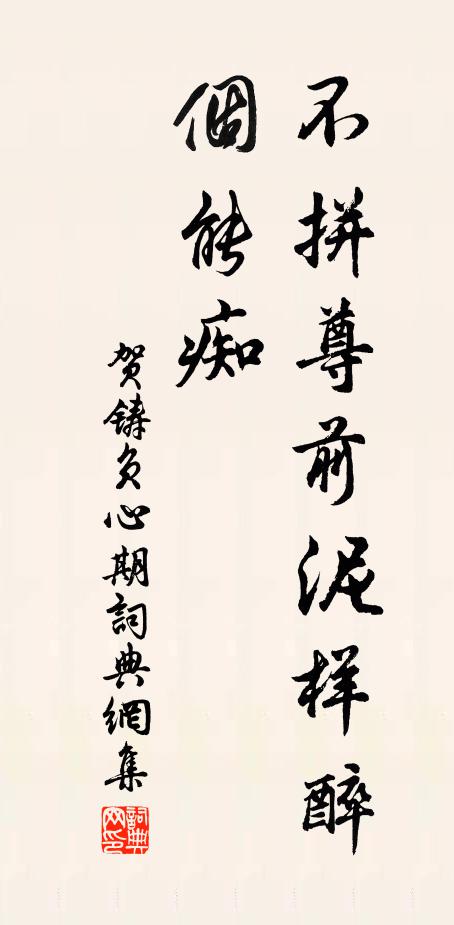 不拼尊前泥样醉
個能痴
贺鑄负心期詞典網集
詞典網印